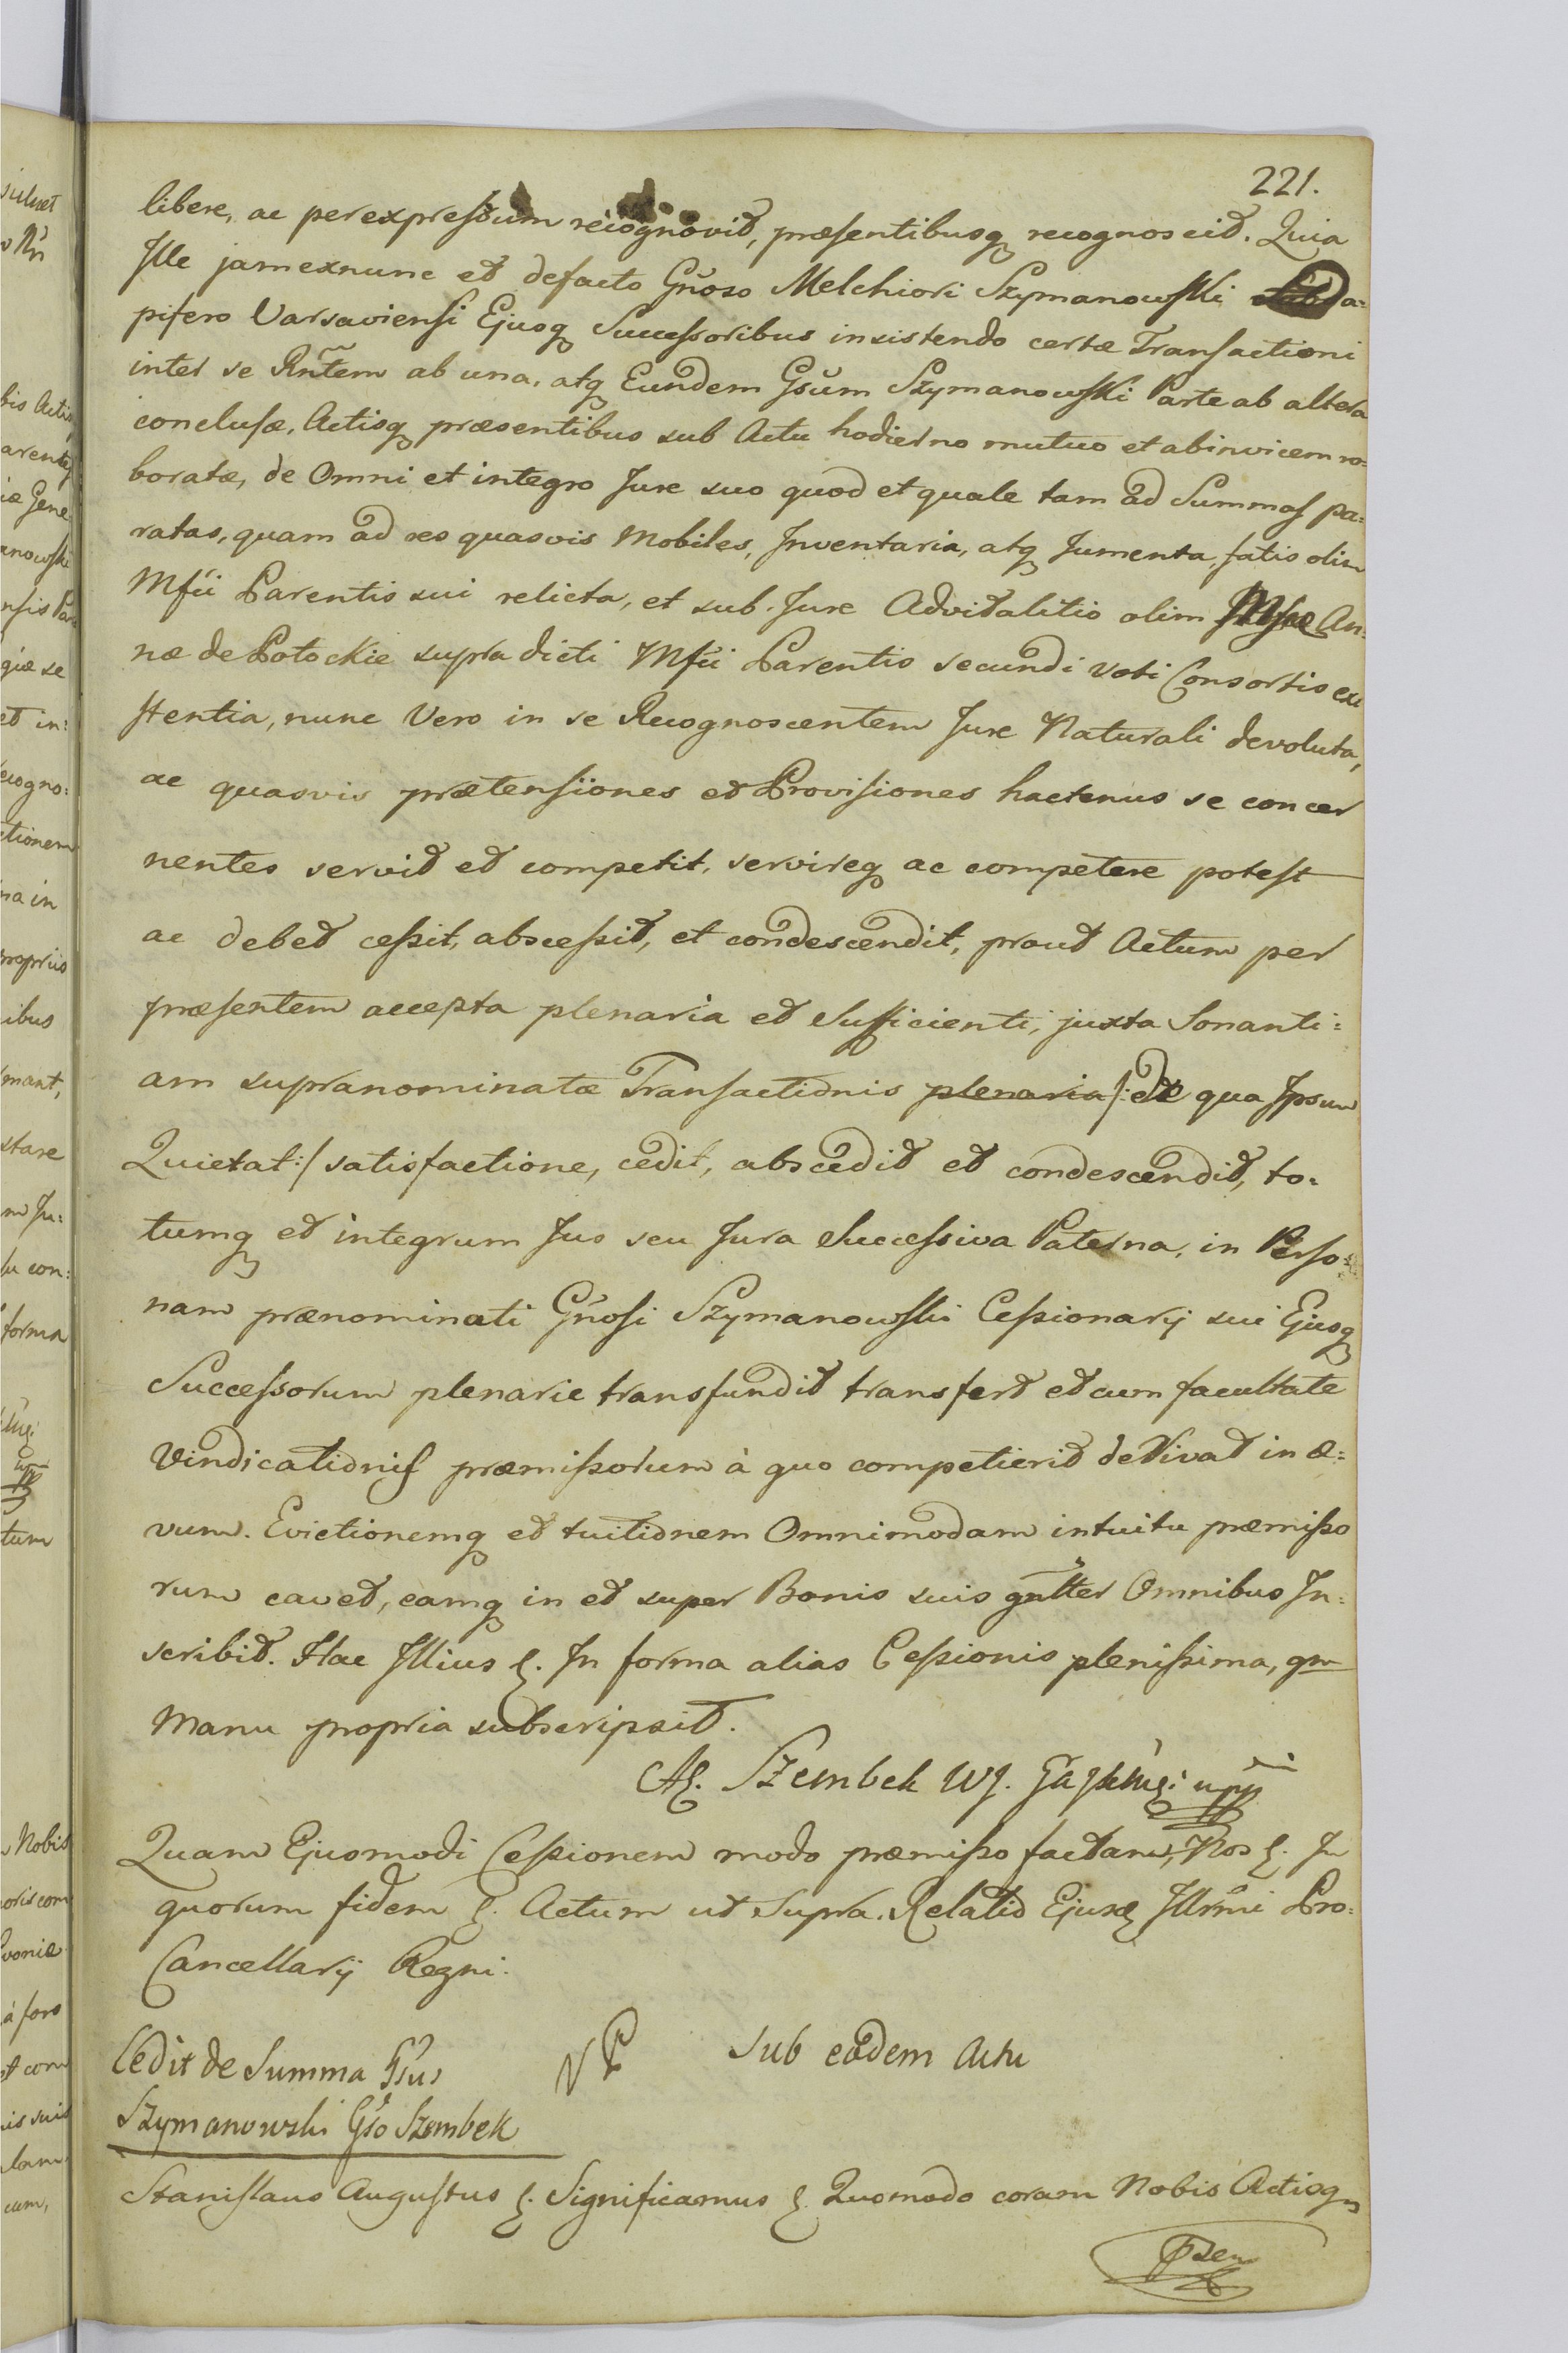 221.
libere, ac per expressum recognovit, præsentibusq recognoscit. Quia
Ille jam exnunc et defacto Gñoso Melchiori Szymanowski Da=
pifero Varsaviensi Ejusq Successoribus insistendo certæ Transactioni
inter se Rñtem ab una, atq Eundem Gsum Szymanowski Parte ab altera
conclusæ, Actisq præsentibus sub Actu hodierno mutuo et abinvicem ro=
boratæ, de Omni et integro Jure suo quod et quale tam ad Summas pa=
ratas, quam ad res quasvis Mobiles, Inventaria, atq Jumenta, fatis olim
Mfci Parentis sui relicta, et sub Jure Advitalitio olim Mfcæ An=
næ de Potockie supra dicti Mfci Parentis secundi voti Consortis exi
stentia, nunc Vero in se Recognoscentem Jure Naturali devoluta,
ac quasvis prætensiones et Provisiones hactenus se concer
nentes servit et competit, servireq ac competere potest
ac debet cessit, abscessit, et condescendit, prout Actum per
præsentem accepta plenaria et Sufficienti, juxta Sonanti=
am supranominatæ Transactionis plenaria /: de qua Ipsum
Quietat :/ satisfactione, cedit, abscedit et condescendit, to=
tumq et integrum Jus seu Jura Successiva Paterna, in Perso=
nam prænominati Gñosi Szymanowski Cessionarij sui Ejusq
Successorum plenarie transfundit transfert et cum facultate
Vindicationis præmissorum à quo competierit deRivat in æ=
vum. Evictionemq et tuitionem Omnimodam intuitu præmisso
rum cavet, eamq in et super Bonis suis gñlter Omnibus In=
scribit. Hac Illius &. In forma alias Cessionis plenissima, qm
Manu propria subscripsit.
Szembek
Quam Ejusmodi Cessionem modo præmisso factam, Nos &. In
quorum fidem &. Actum ut Supra. Relatio Ejusd Illrmi Pro=
Cancellarij Regni.
Cedit de Summa Gsus
Szymanowski Gso Szembek
Sub eodem Actu
Stanislaus Augustus &. Significamus &. Quomodo coram Nobis Actisq